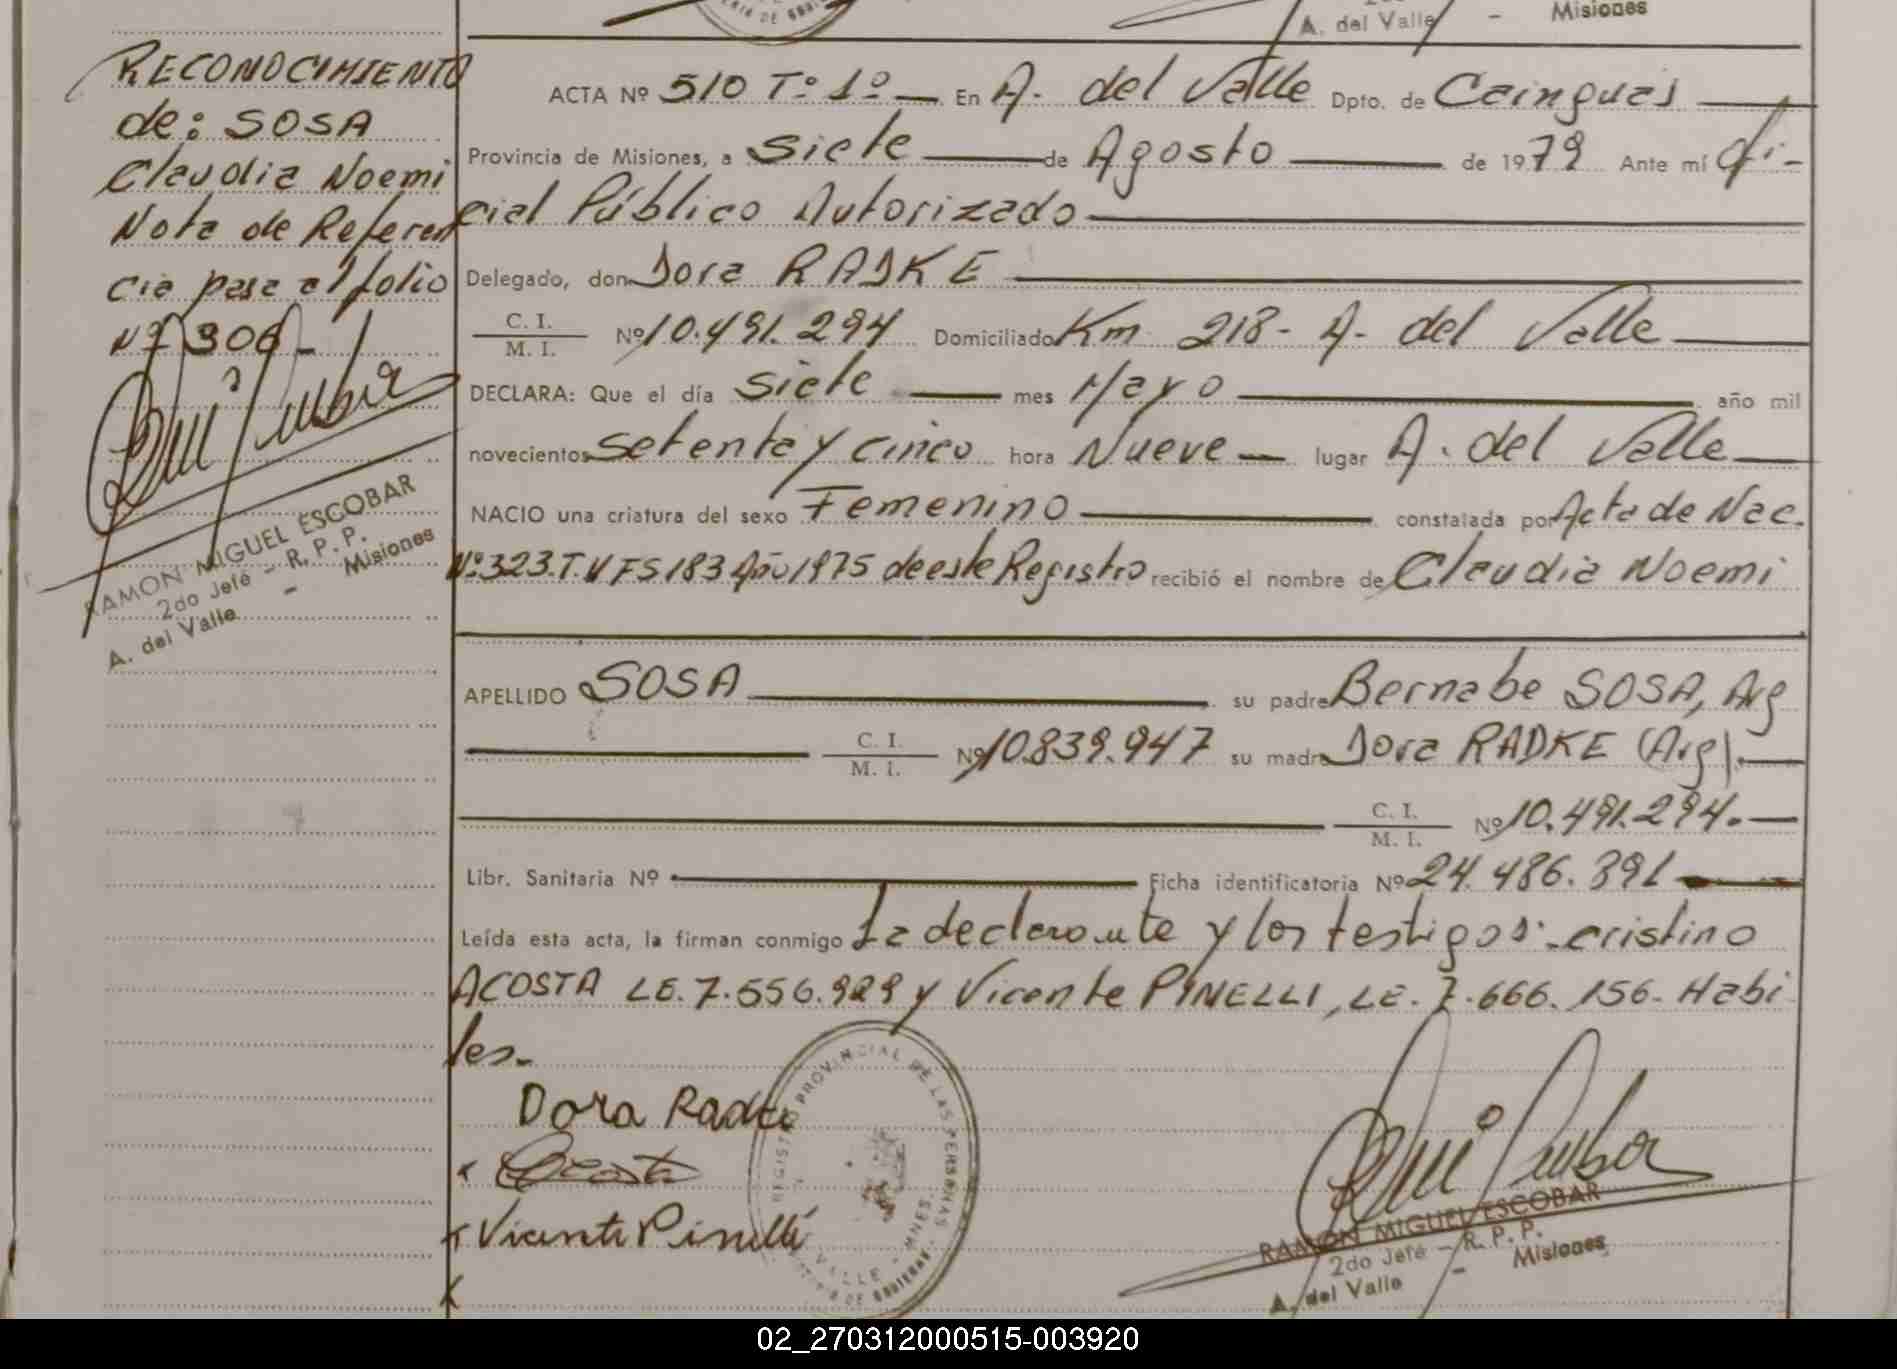 A. del Valle - Misiones
RECONOCIMIENTO
de: SOSA
Claudia Noemi
Nota de Referen
cia pasa al folio
Nº 306-
RAMON MIGUEL ESCOBAR
2do Jefe - R. P. P.
A. del Valle - Misiones
ACTA Nº 510 Tº 1º En A. del Valle Dpto. de Cainguas
Provincia de Misiones, a siete de Agosto de 1979 Ante mí Ofi-
cial Público Autorizado
Delegado, don Dora RADKE
C. I.
M. I. Nº 10.491.294 Domiciliado Km 218- A. del Valle
DECLARA: Que el día siete mes Mayo año mil
novecientos setenta y cinco hora Nueve lugar A. del Valle
NACIO una criatura del sexo Femenino constatada por Acta de Nac.
Nº 323.T.V FS 183 Año 1975 de este Registro recibió el nombre de Claudia Noemi
APELLIDO SOSA su padre Bernabe SOSA, Arg
C. I.
M. I. Nº 10.839.947 su madre Dora RADKE (Arg).
C. I.
M. I. Nº 10.491.294.
Libr. Sanitaria Nº Ficha identificatoria Nº 24.486.391
Leída esta acta, la firman conmigo La declarante y los testigos: cristino
ACOSTA LE. 7.556.929 y Vicente PINELLI, LE. 7.666.156. Habi
les.
Dora Radke
Acosta
Vicente Pinelli
REGISTRO PROVINCIAL DE LAS PERSONAS
VALLE - MNES.
RAMON MIGUEL ESCOBAR
2do Jefe - R. P. P.
A. del Valle - Misiones
02_270312000515-003920